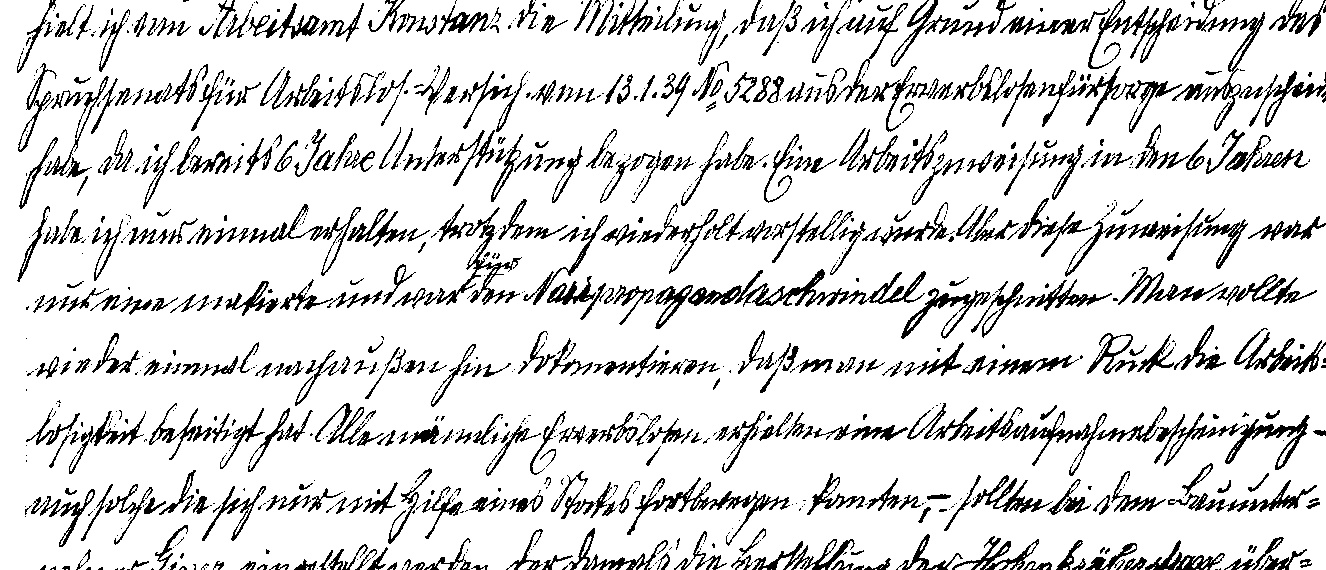 hielt ich vom Arbeitsamt Konstanz die Mitteilung, daß ich auf Grund einer Entscheidung des
Spruchsenats für Arbeitslos.-Versich. vom 13.1.39 No 5288 aus der Erwerbslosenfürsorge auszuscheiden
habe, da ich bereits 6 Jahre Unterstützung bezogen habe. Eine Arbeitszuweisung in den 6 Jahren
habe ich nur einmal erhalten, trotzdem ich wiederholt vorstellig wurde. Aber diese Zuweisung war
für
nur eine makierte und war den Nazipropagandaschwindel zugeschnitten. Man wollte
wieder einmal nach außen hin dokomentieren, daß man mit einem Ruck die Arbeits-
losigkeit beseitigt hat. Alle männliche Erwerbslosen erhielten eine Arbeitsaufnahmebescheinigung -
auch solche die sich nur mit Hilfe eines Stockes fortbewegen konnten, - sollten bei dem Bauunter-
nehmer eingestellt werden, der damals die Herstellung der über-